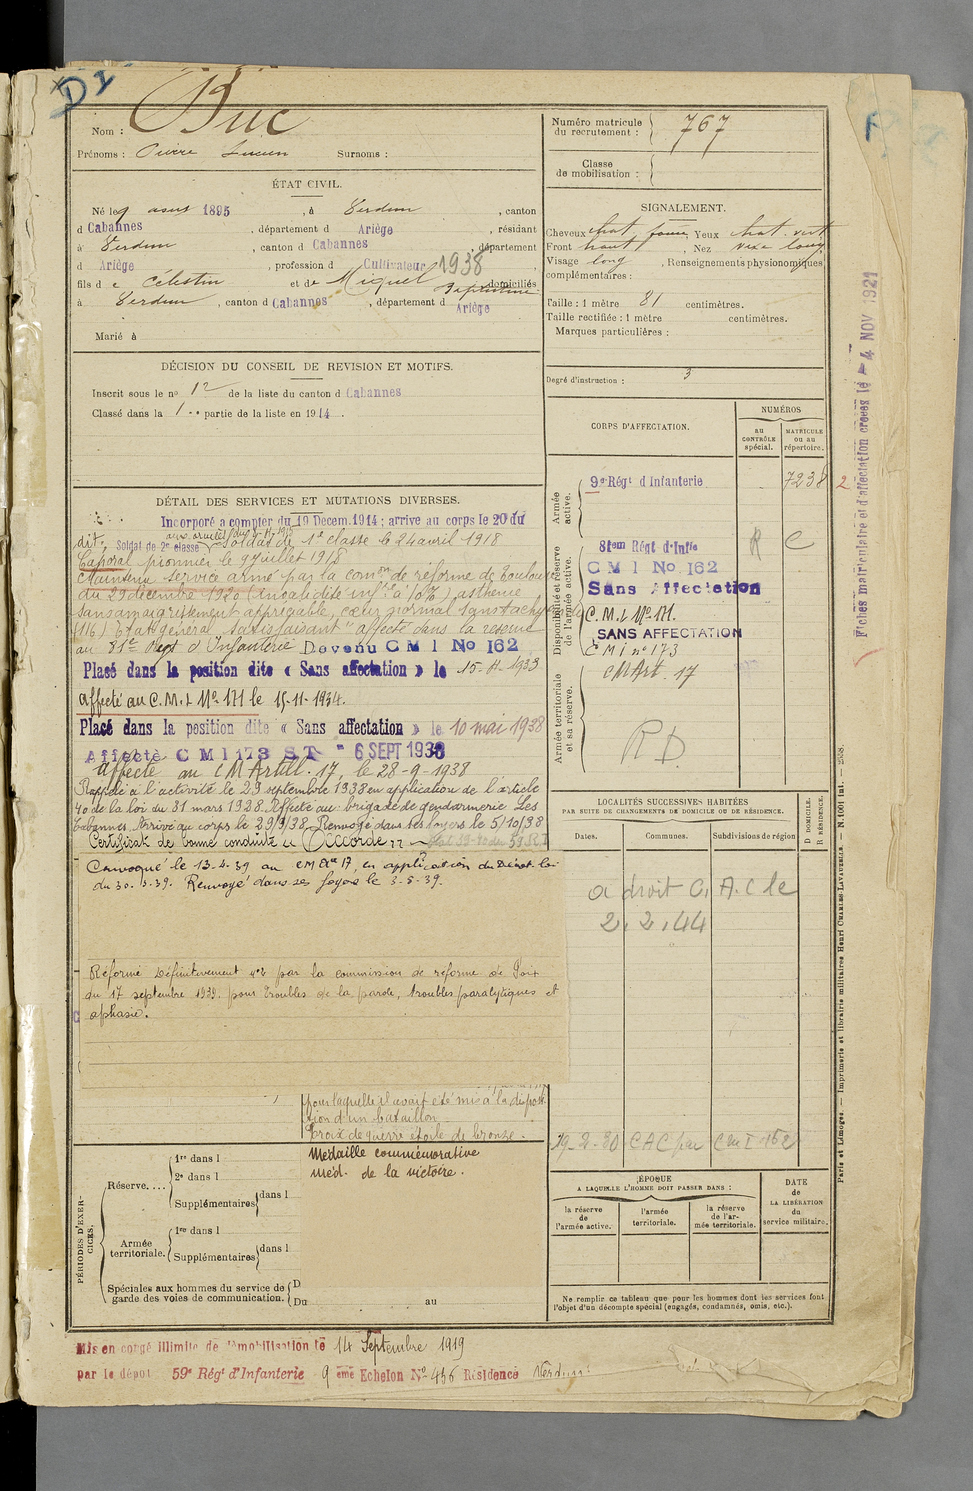 D I
Nom : Buc
Prénoms : Pierre Lucien Surnoms :
Numéro matricule du recrutement : 767
Classe de mobilisation :
ÉTAT CIVIL.
Né le 9 août 1895, à Verdun, canton
d Cabannes, département d Ariège, résidant
à Verdun, canton d Cabannes, département
d Ariège, profession d Cultivateur 1938
fils de Célestin et de Miquel Baptistine domiciliés
à Verdun, canton d Cabannes, département d Ariège
Marié à
SIGNALEMENT.
Cheveux chat. foncé, Yeux chat. vert
Front haut, Nez
Visage long, Renseignements physionomiques
complémentaires :
Taille : 1 mètre 81 centimètres.
Taille rectifiée : 1 mètre centimètres.
Marques particulières :
Degré d'instruction : 3
DÉCISION DU CONSEIL DE REVISION ET MOTIFS.
Inscrit sous le no 12 de la liste du canton d Cabannes
Classé dans la 1 partie de la liste en 1914.
DÉTAIL DES SERVICES ET MUTATIONS DIVERSES.
Incorporé a compter du 19 Decem. 1914 ; arrive au corps le 20 du
dit, Soldat de 2e classe Soldat de 1e classe le 24 avril 1918
Caporal pionnier le 9 juillet 1918
Maintenu service armé par la comon de réforme de Toulouse
du 29 décembre 1920 (invalidité infre à 10%) asthénie
sans amaigrissement appréciable, cœur normal sans tachycardie
(116) Etat général satisfaisant" affecté dans la réserve
au 81e Regt d'Infanterie Devenu C M I No 162
Placé dans la position dite « Sans affectation » le 15-11-1933
affecté au C.M.I No 171 le 15-11-1934.
Placé dans la position dite « Sans affectation » le 10 mai 1938
Affecté C M I 173 ST 6 SEPT 1938
affecté au C M Artill. 17, le 28-9-1938
Rappelé à l'activité le 29 septembre 1938 en application de l'article
40 de la loi du 31 mars 1928. Affecté au brigade de gendarmerie Les
Cabannes. Arrivé au corps le 29/9/38. Renvoyé dans ses foyers le 5/10/38
Certificat de bonne conduite "Accordé"
Convoqué le 13-4-39 au CM Art 17, en application du Décret-loi
du 30.3.39. Renvoyé dans ses foyers le 3-5-39.
Réformé Définitivement no 2 par la commission de réforme de Foix
du 17 septembre 1939. pour troubles de la parole, troubles paralytiques et
aphasie.
pour laquelle il avait été mis à la disposi
tion d'un bataillon
Croix de guerre étoile de bronze.
Médaille commémorative
méd. de la victoire.
CORPS D'AFFECTATION.
NUMÉROS
au CONTRÔLE spécial.
MATRICULE ou au répertoire.
Armée active.
9e Régt d Infanterie 7238 2
Disponibilité et réserve de l'armée active.
81em Régt d'Infie R C
C M I No 162
Sans Affectation
C.M.I No 171.
SANS AFFECTATION
C M I no 173
Armée territoriale et sa réserve.
CM Art. 17
R D
LOCALITÉS SUCCESSIVES HABITÉES
PAR SUITE DE CHANGEMENTS DE DOMICILE OU DE RÉSIDENCE.
Dates. Communes. Subdivisions de région
D DOMICILE. R RÉSIDENCE.
a droit C. A. C le
2. 2. 44
19-2-30 CAC par CM I 162
PÉRIODES D'EXERCICES.
Réserve....
1re dans l
2e dans l
Supplémentaires dans l
Armée territoriale.
1re dans l
Supplémentaires dans l
Spéciales aux hommes du service de garde des voies de communication. D
Du au
ÉPOQUE
A LAQUELLE L'HOMME DOIT PASSER DANS :
la réserve de l'armée active.
l'armée territoriale.
la réserve de l'armée territoriale.
DATE DE LA LIBÉRATION du service militaire.
Ne remplir ce tableau que pour les hommes dont les services font
l'objet d'un décompte spécial (engagés, condamnés, omis, etc.).
Mis en congé illimité de démobilisation le 14 Septembre 1919
par le dépot 59e Régt d'Infanterie 9 eme Echelon No 456 Résidence Verdun
Fiches matriculaire et d'affectation créées le - 4 NOV 1921
Paris et Limoges. — Imprimerie et librairie militaires Henri CHARLES-LAVAUZELLE. — N. 1001 Int. — 253.